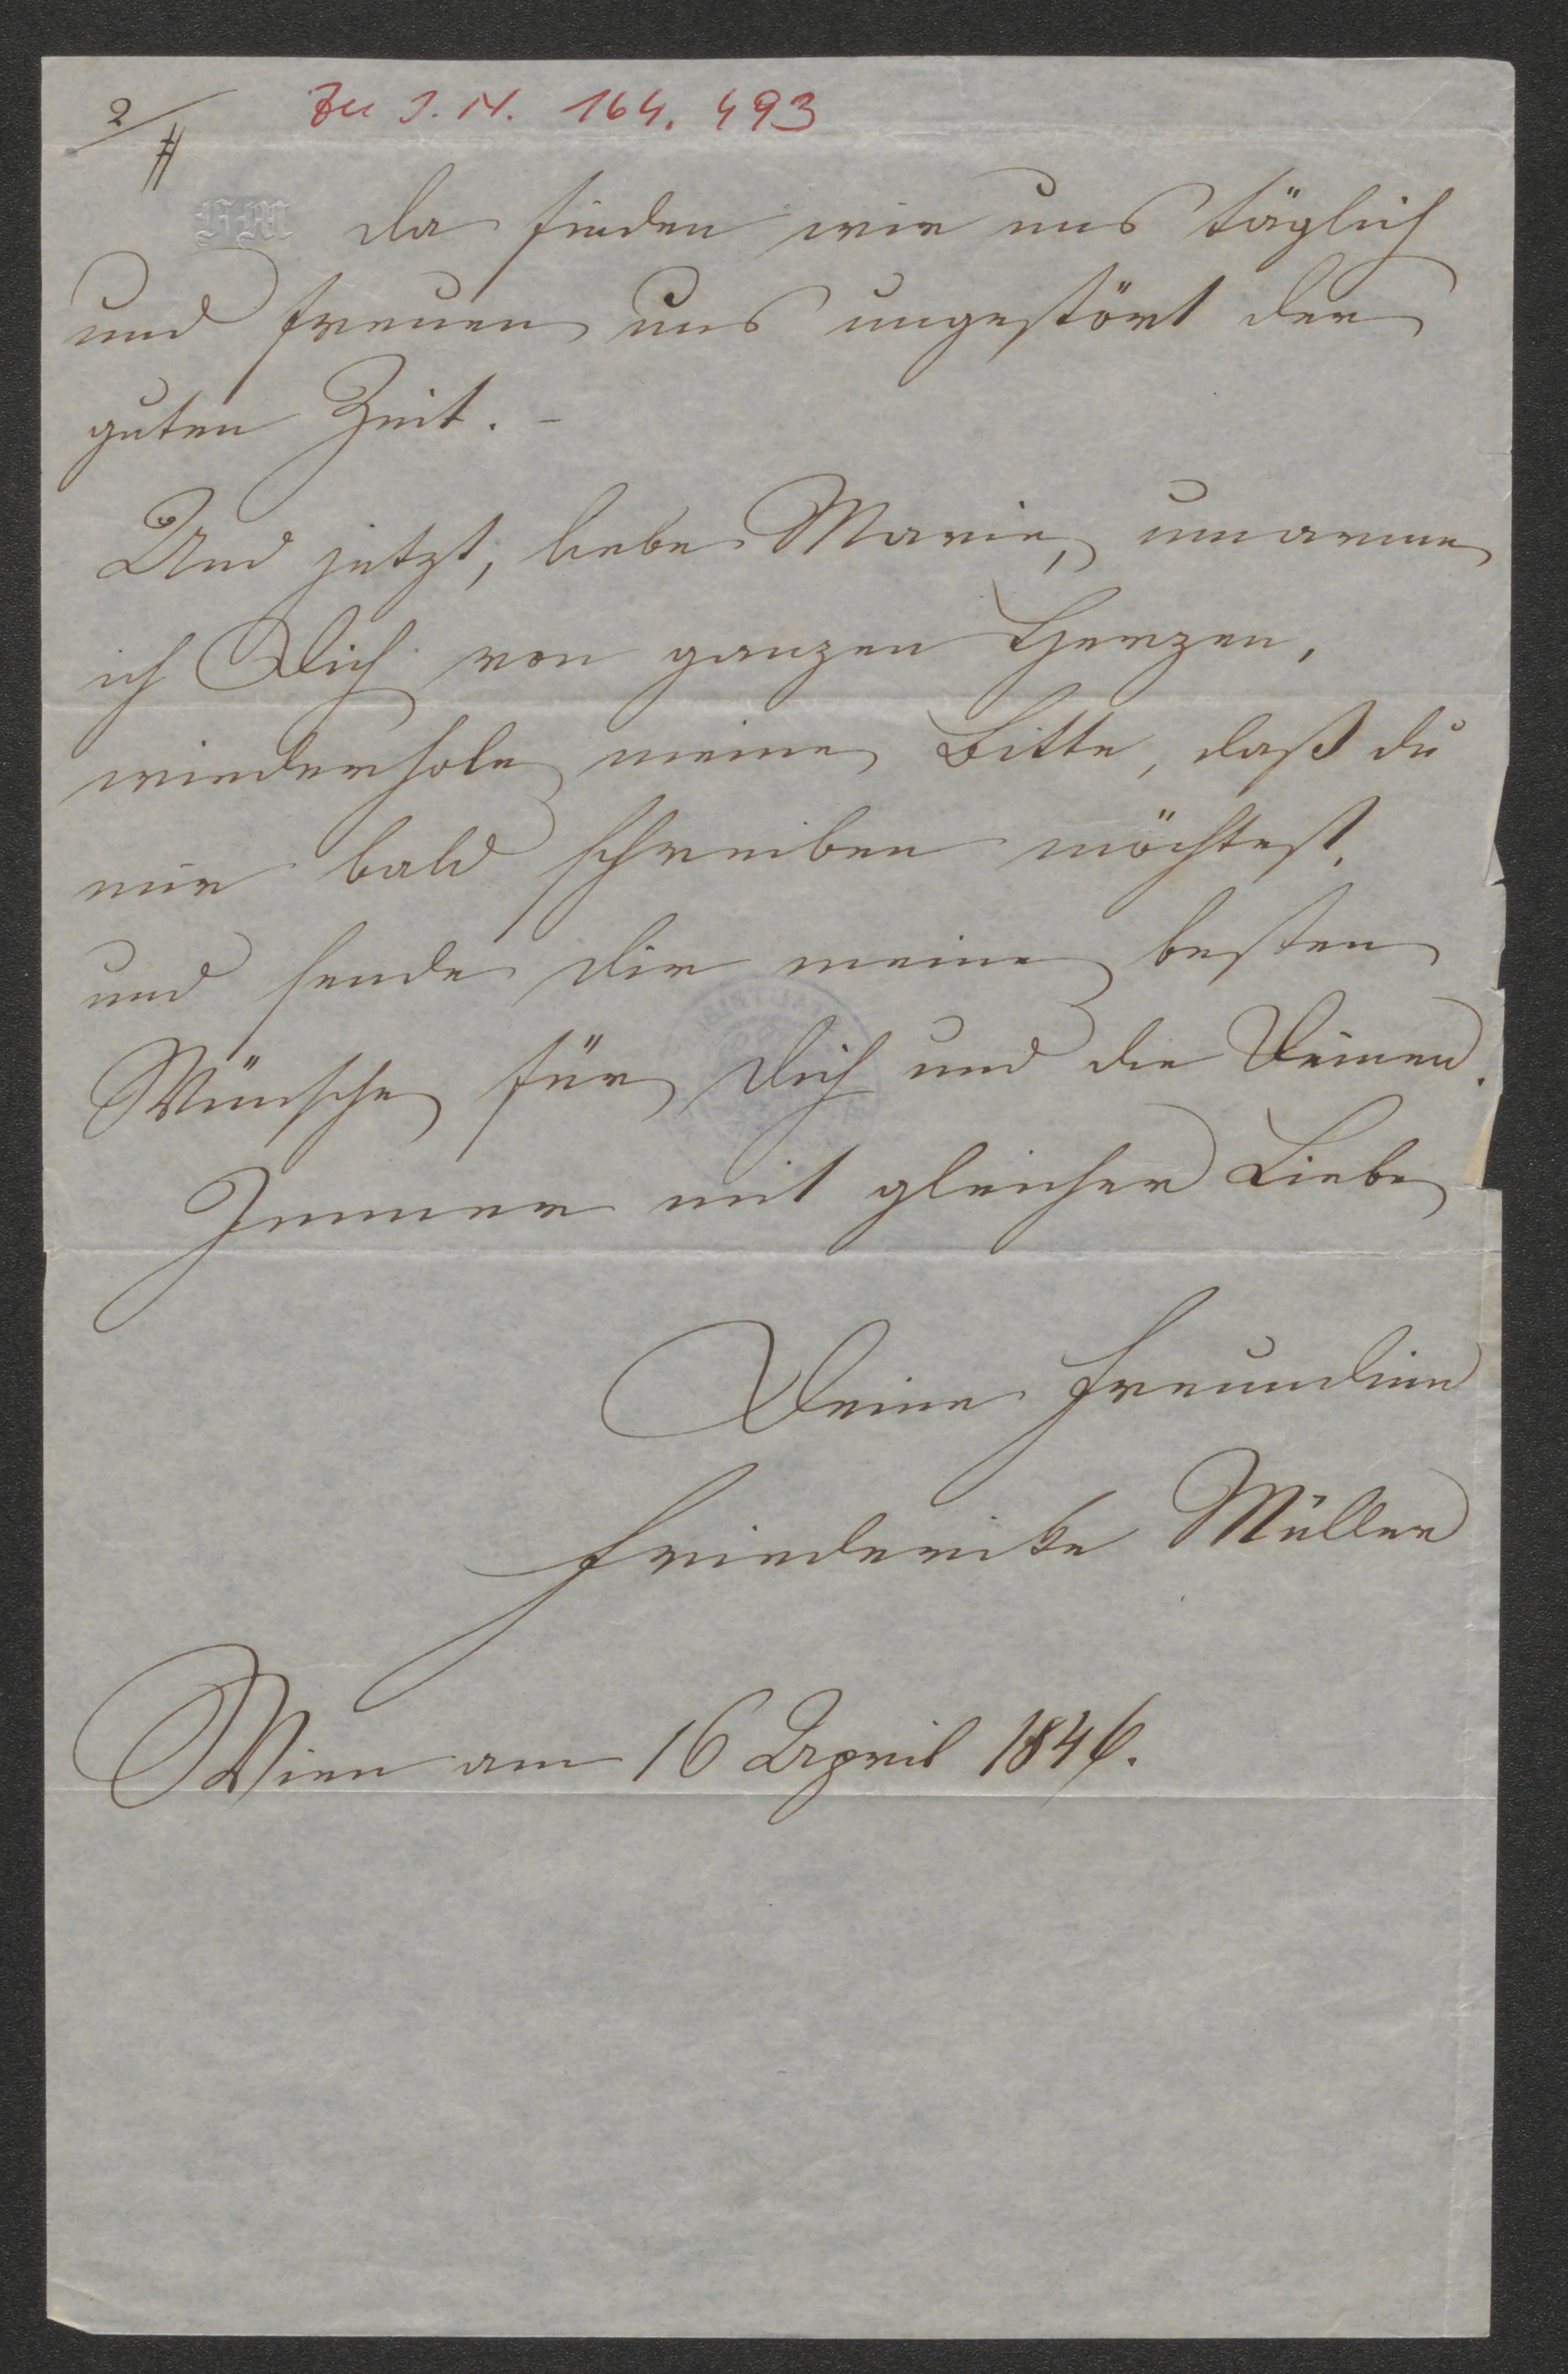 2/
#
Zu I.N. 164.493
FM
da finden wir uns täglich
und freuen uns ungestört der
guten Zeit. –
Und jetzt, liebe Marie, umarme
ich Dich von ganzen Herzen,
wiederhole meine Bitte, daß du
mir bald schreiben möchtest,
und sende dir meine besten
Wünsche für dich und die Deinen.
Immer mit gleicher Liebe
Deine Freundinn
Friederike Müller
Wien am 16 April 1846.